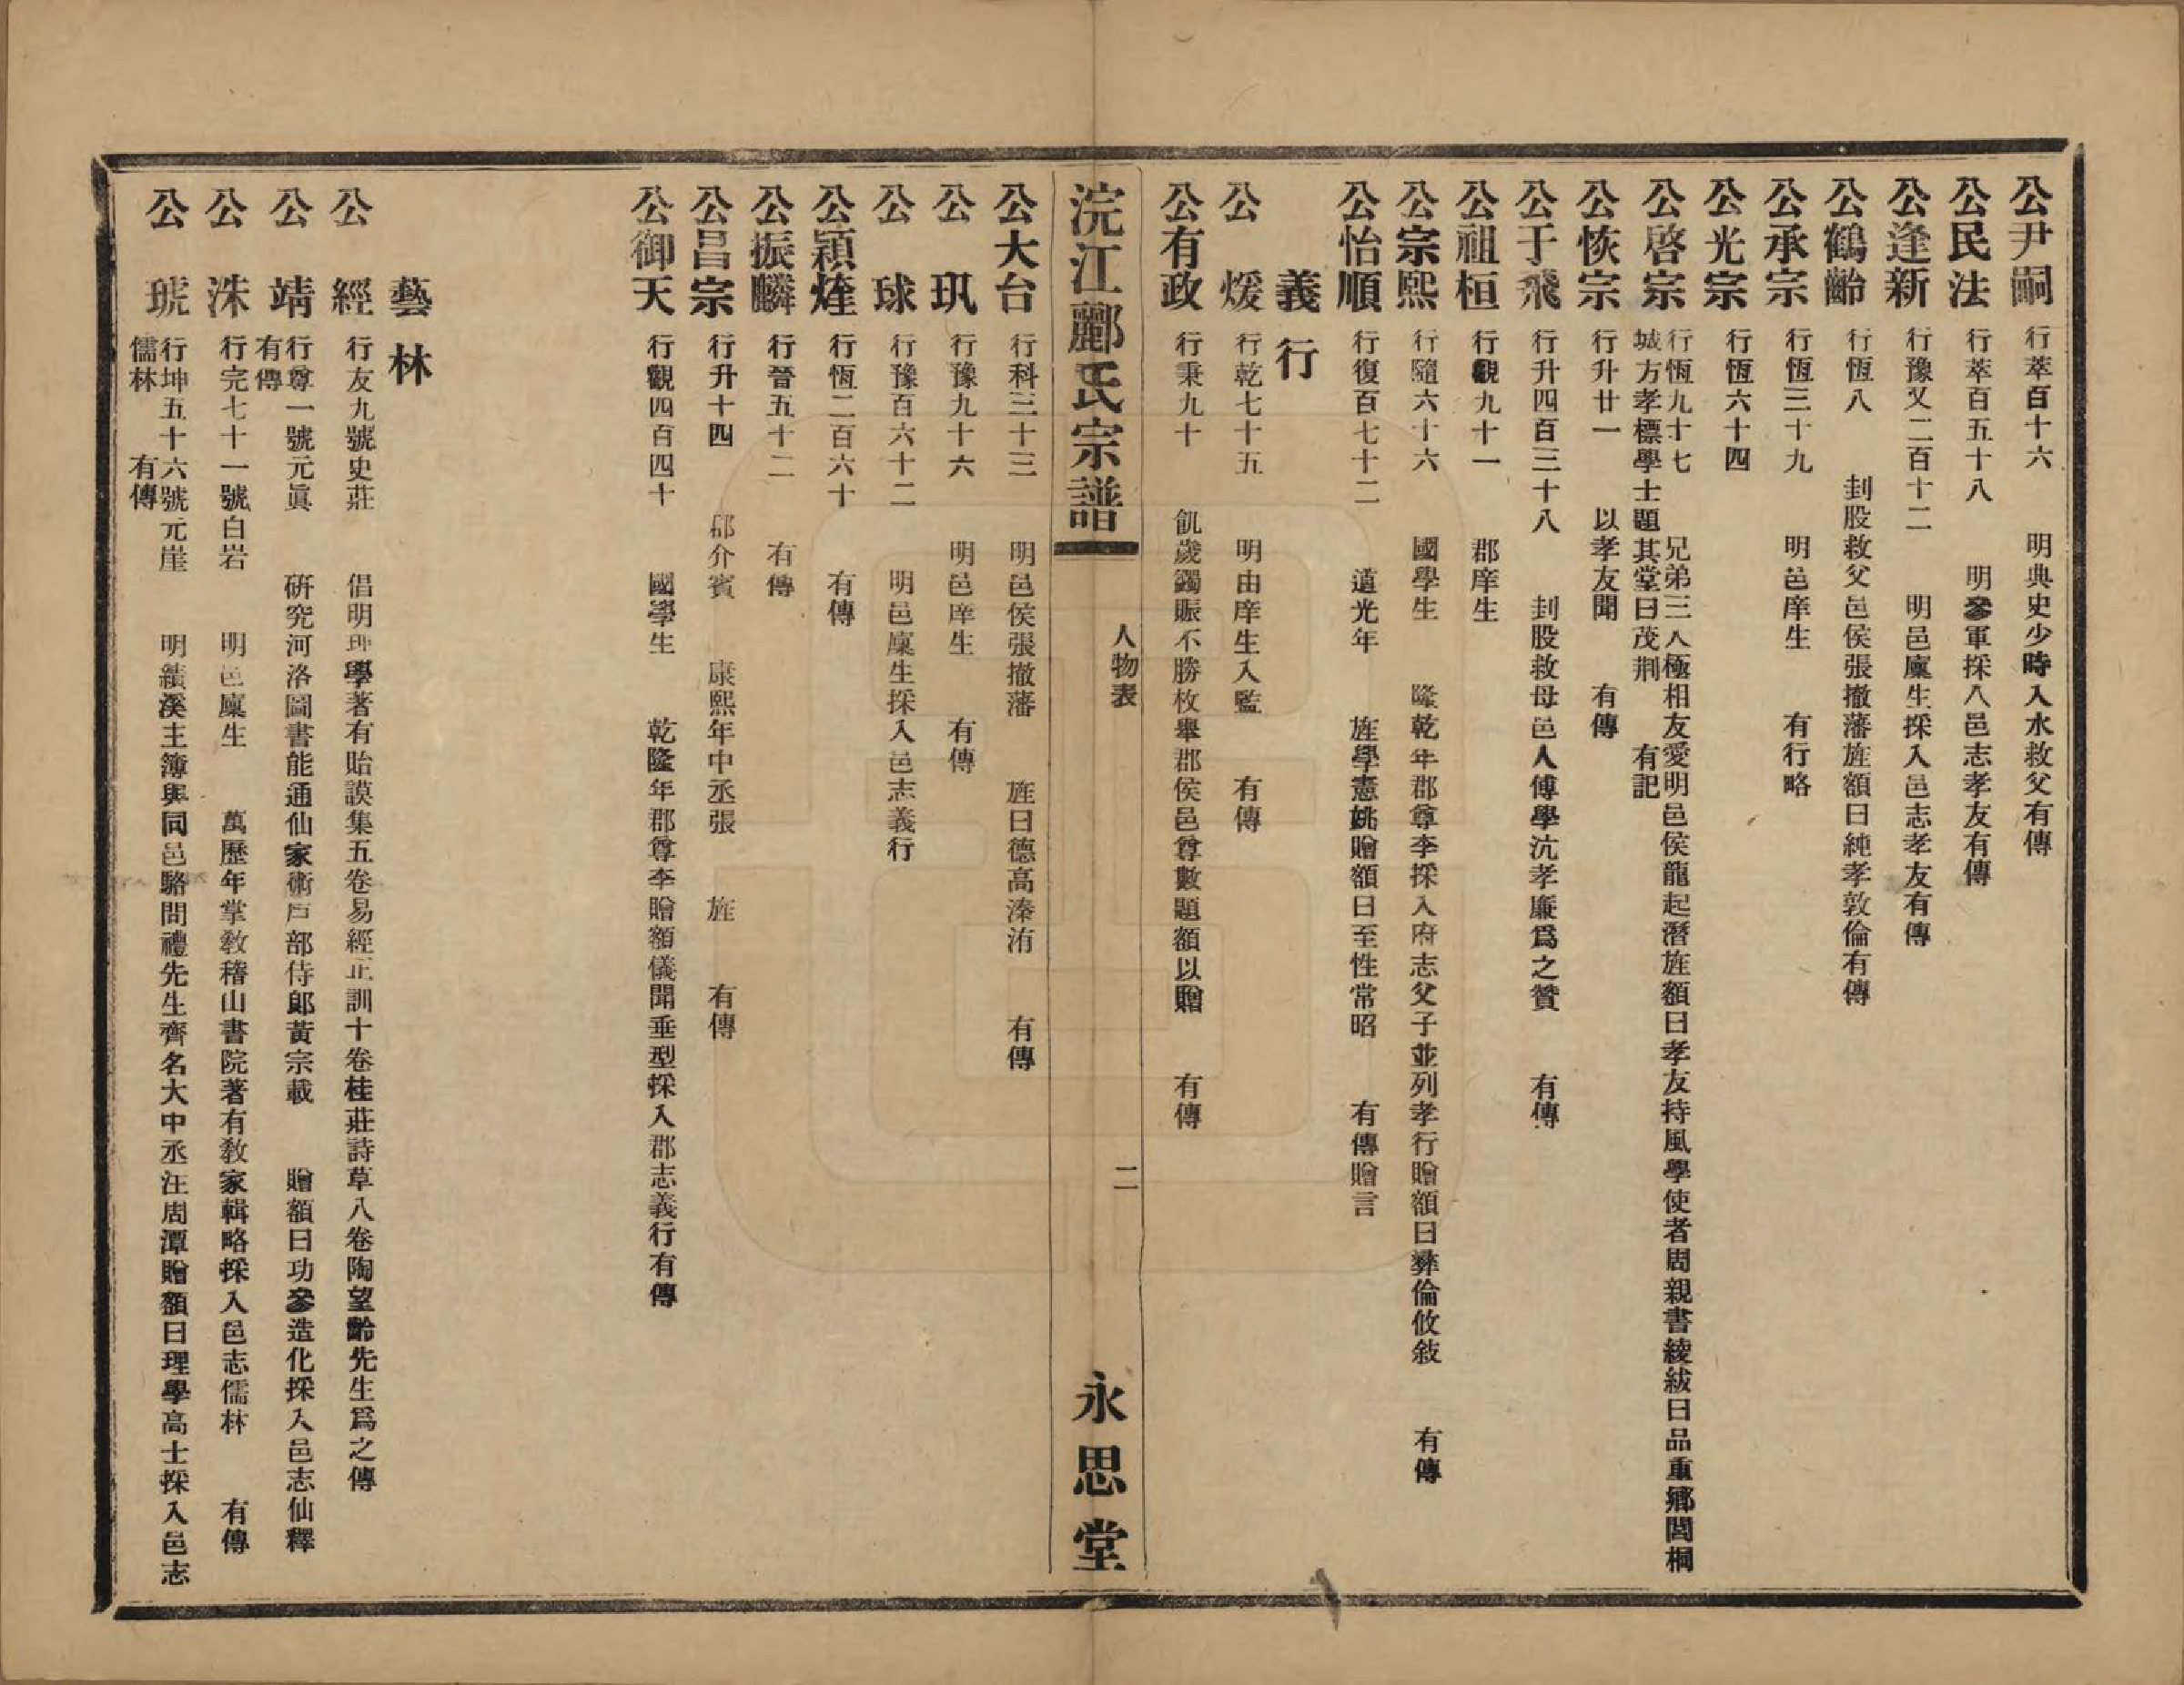 公尹嗣 行萃百十六 明典史少時入水救父有傳
公民法 行萃百五十八 明參軍採入邑志孝友有傳
公逢新 行豫又二百十二 明邑廩生採入邑志孝友有傳
公鶴齡 行恆八 刲股救父邑侯張撤藩旌額曰純孝敦倫有傳
公承宗 行恆三十九 明邑庠生 有行略
公光宗 行恆六十四
公啓宗 行恆九十七 兄弟三人極相友愛明邑侯龍起潛旌額曰孝友持風學使者周親書綾紱曰品重鄉閭桐
城方孝標學士題其堂曰茂荆 有記
公恢宗 行升廿一 以孝友聞 有傳
公于飛 行升四百三十八 刲股救母邑人傅學沆孝廉爲之贊 有傳
公祖桓 行觀九十一 郡庠生
公宗熙 行隨六十六 國學生 隆乾年郡尊李採入府志父子並列孝行贈額曰彝倫攸敍 有傳
公怡順 行復百七十二 道光年 旌學憲姚贈額曰至性常昭 有傳贈言
義行
公煖 行乾七十五 明由庠生入監 有傳
公有政 行秉九十 飢歲蠲賑不勝枚舉郡侯邑尊數題額以贈 有傳
浣江酈氏宗譜 人物表 二 永思堂
公大台 行科三十三 明邑侯張撤藩 旌曰德高溱洧 有傳
公玑 行豫九十六 明邑庠生 有傳
公球 行豫百六十二 明邑廩生採入邑志義行
公穎煃 行恆二百六十 有傳
公振麟 行晉五十二 有傳
公昌宗 行升十四 邱介賓 康熙年中丞張 旌 有傳
公御天 行觀四百四十 國學生 乾隆年郡尊李贈額儀閑垂型採入郡志義行有傳
藝林
公經 行友九號史莊 倡明理學著有貽謨集五卷易經正訓十卷桂莊詩草八卷陶望齡先生爲之傳
公靖 行尊一號元眞 研究河洛圖書能通仙家術戶部侍郞黃宗載 贈額曰功參造化採入邑志仙釋
有傳
公洙 行完七十一號白岩 明邑廩生 萬歷年掌敎稽山書院著有敎家輯略採入邑志儒林 有傳
公琥 行坤五十六號元崖 明績溪主簿與同邑駱問禮先生齊名大中丞汪周潭贈額曰理學高士採入邑志
儒林 有傳